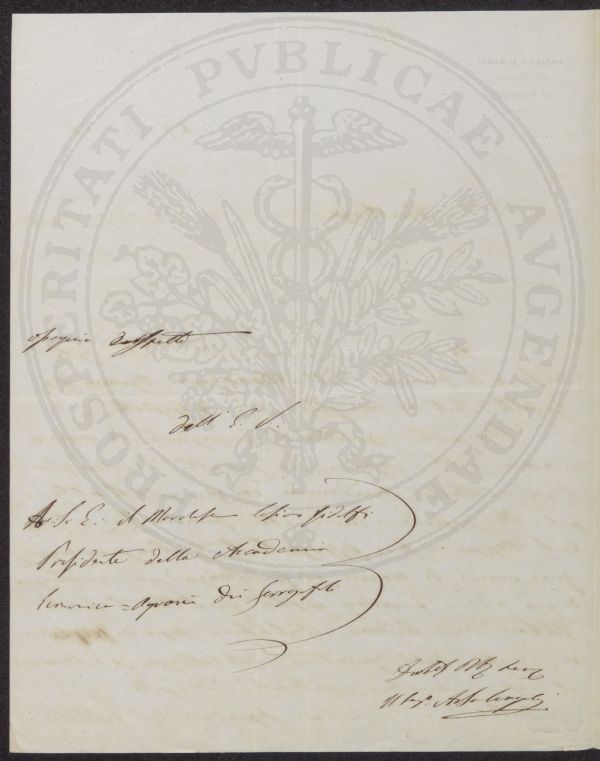 PROSPERITATI PVBLICAE AVGENDAE
ossequio e rispetto
dell' E. V.
A S. E. il Marchese Cosimo Ridolfi
Presidente della Accademia
Economico = Agraria dei Georgofili